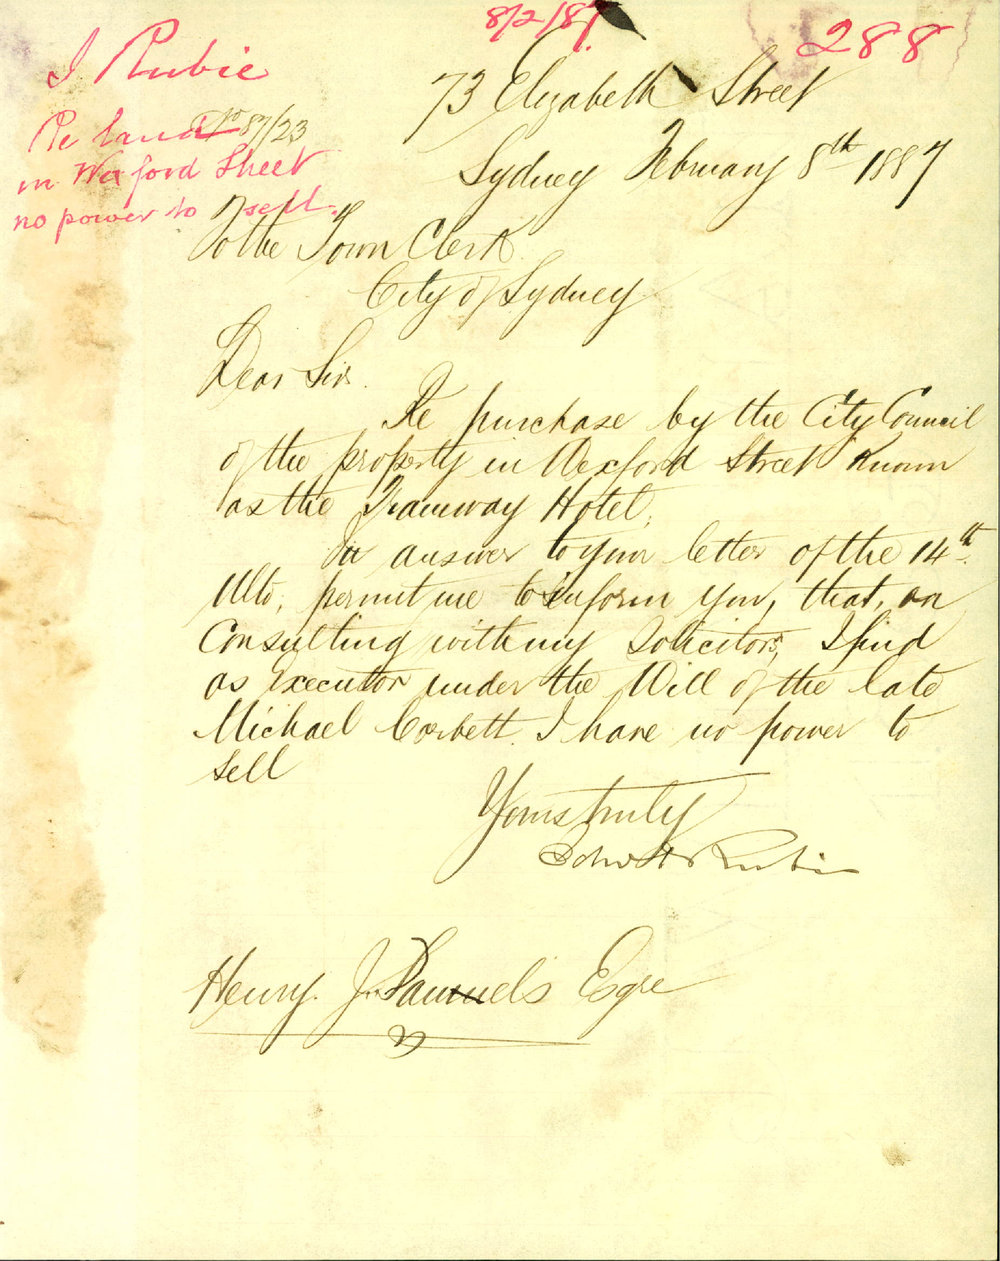 8/2/87.
288
I Rubie
Re land
in Wexford Street
no power to sell.
87/23
73 Elizabeth Street
Sydney February 8th 1887
To the Town Clerk
City of Sydney
Dear Sir.
Re purchase by the City Council
of the property in Wexford Street Known
as the Tramway Hotel.
In answer to your letter of the 14th
Ulto, permit me to inform you, that, on
Consulting with my Solicitors, I find
as Executor under the Will of the late
Michael Corbett. I have no power to
sell
Yours truly
Rubie
Henry. J. Samuels Esqre